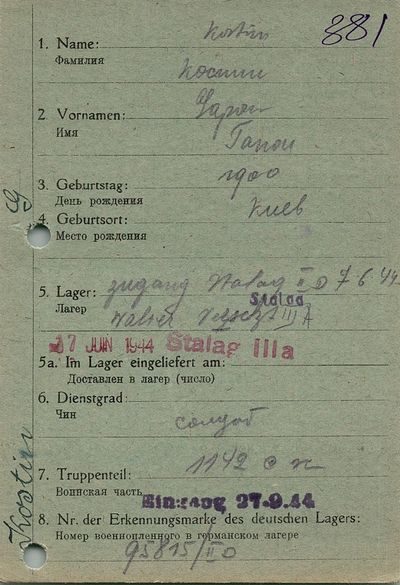 881
Kostin
1. Name:
Фамилия
Костин
2 Vornamen:
Имя
3. Geburtstag:
День рождения
1900
4. Geburtsort:
Киев
Место рождения
5. Lager:
Zugang Stalag II D 7.6.44
Лагерь
Stalag III A
17 JUIN 1944 Stalag IIIa
5a. Im Lager eingeliefert am:
Доставлен в лагерь (число)
6. Dienstgrad:
Чин
солдат
7. Truppenteil:
1142 с п
Воинская часть
Eingang 27.9.44
8. Nr. der Erkennungsmarke des deutschen Lagers:
Номер военнопленного в германском лагере
95815/II D
Kostin